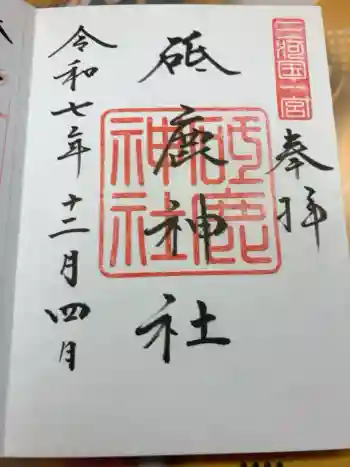 三河国一宮
奉拝
砥鹿神社
砥鹿神社
令和七年十二月四日